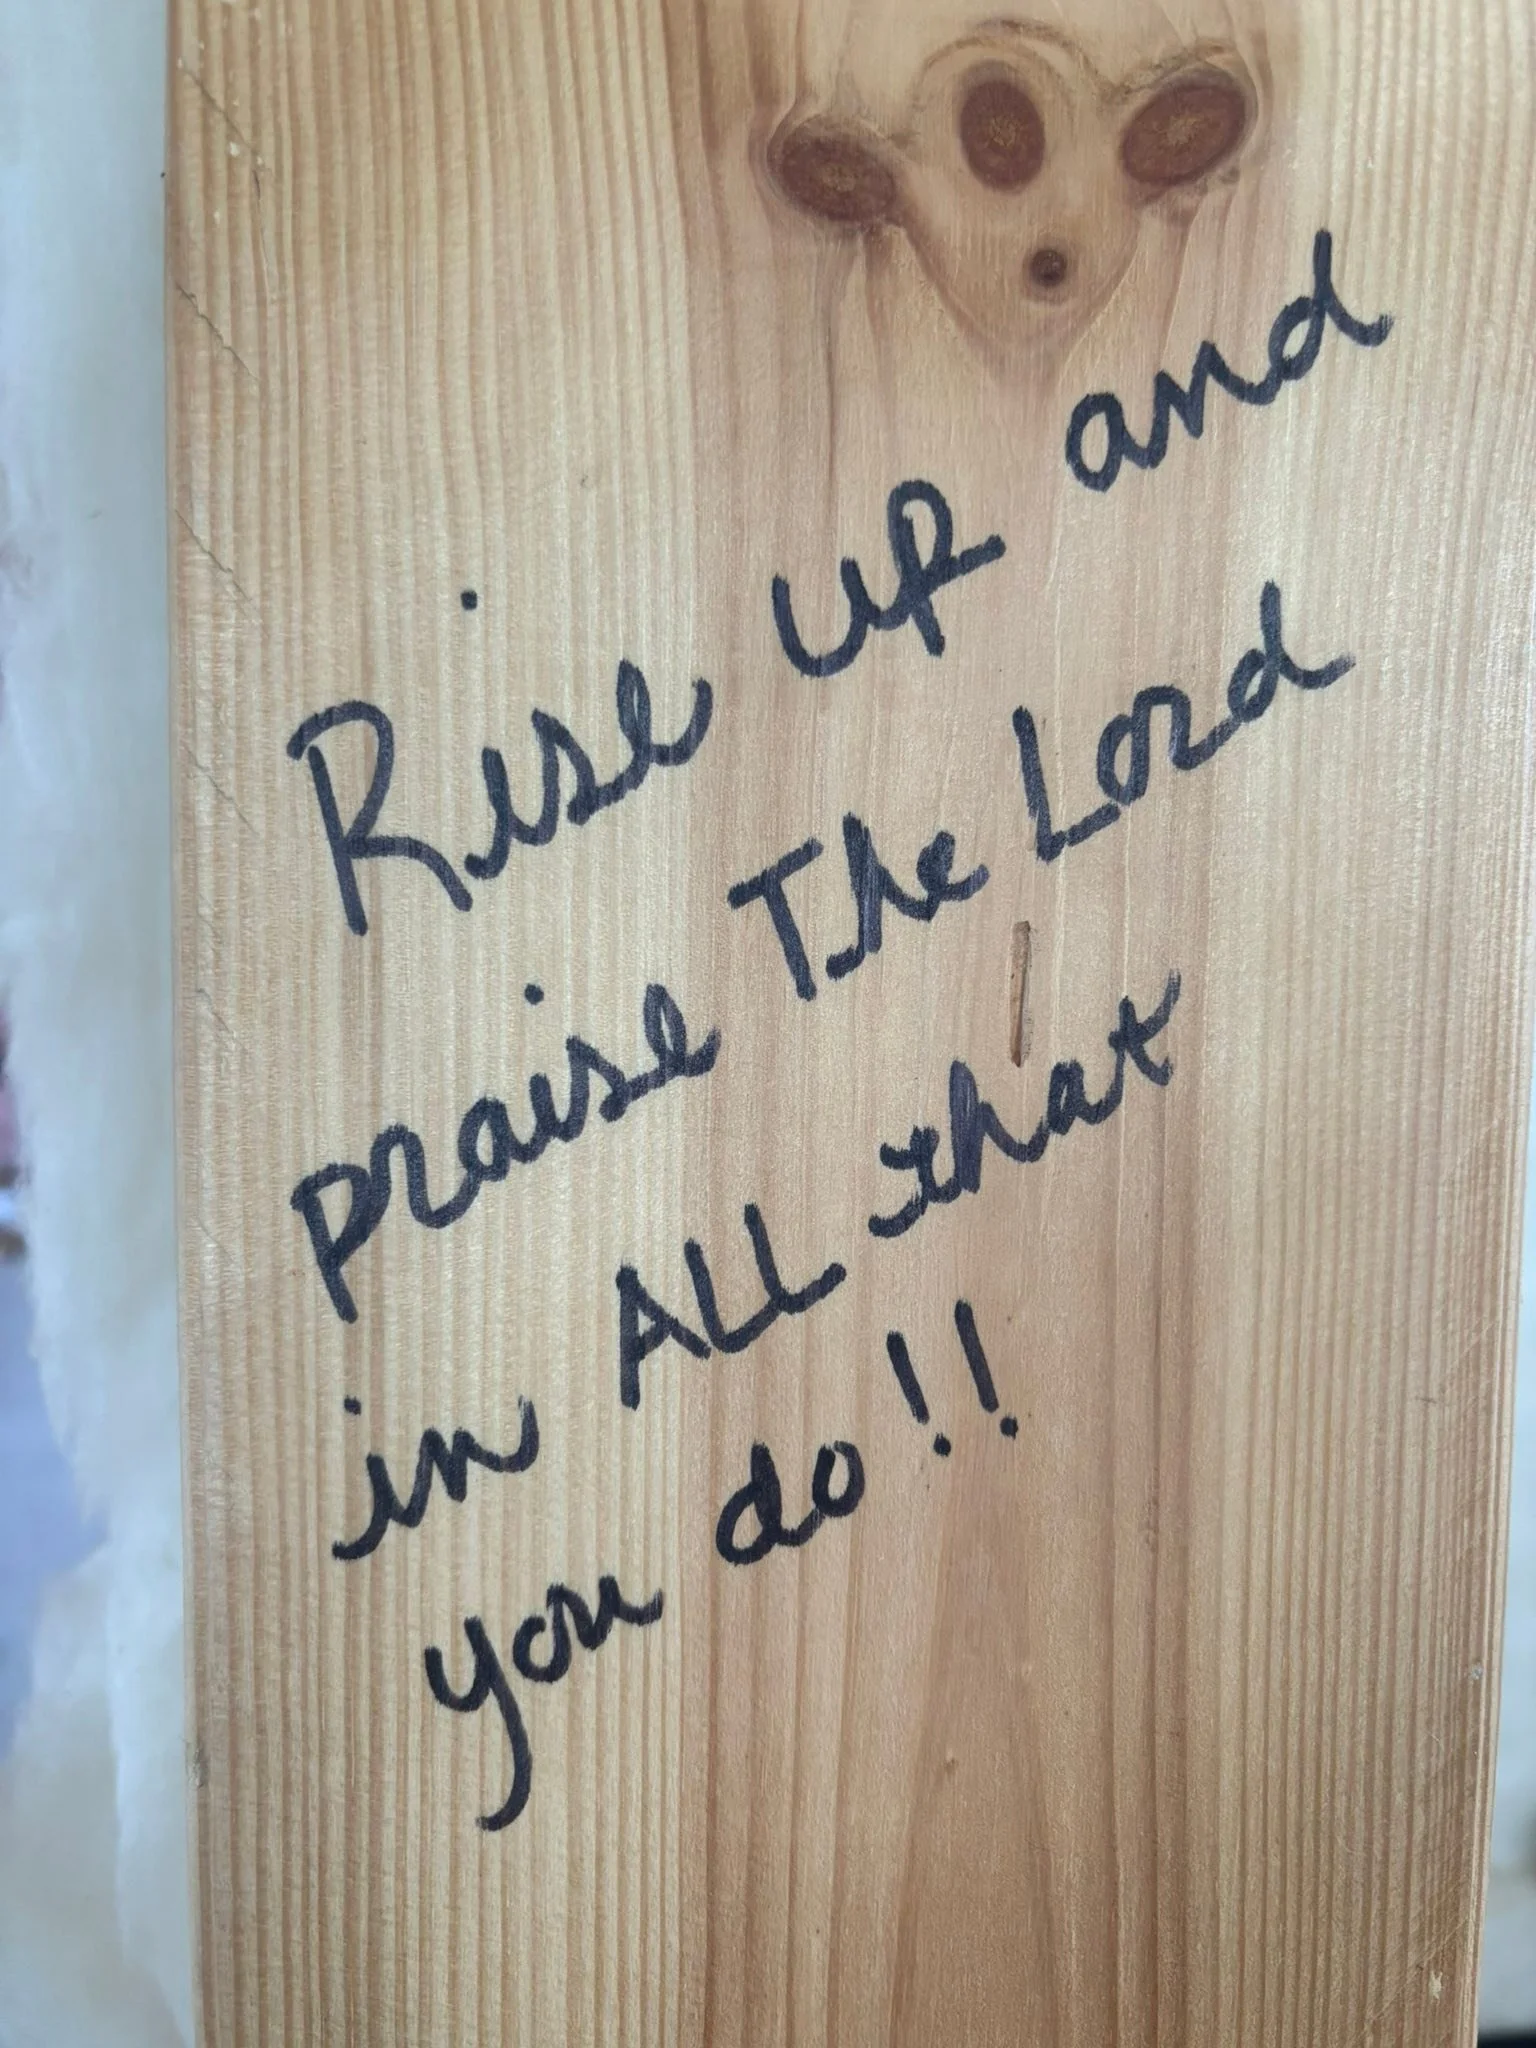 Rise up and
praise The Lord
in ALL that
you do!!